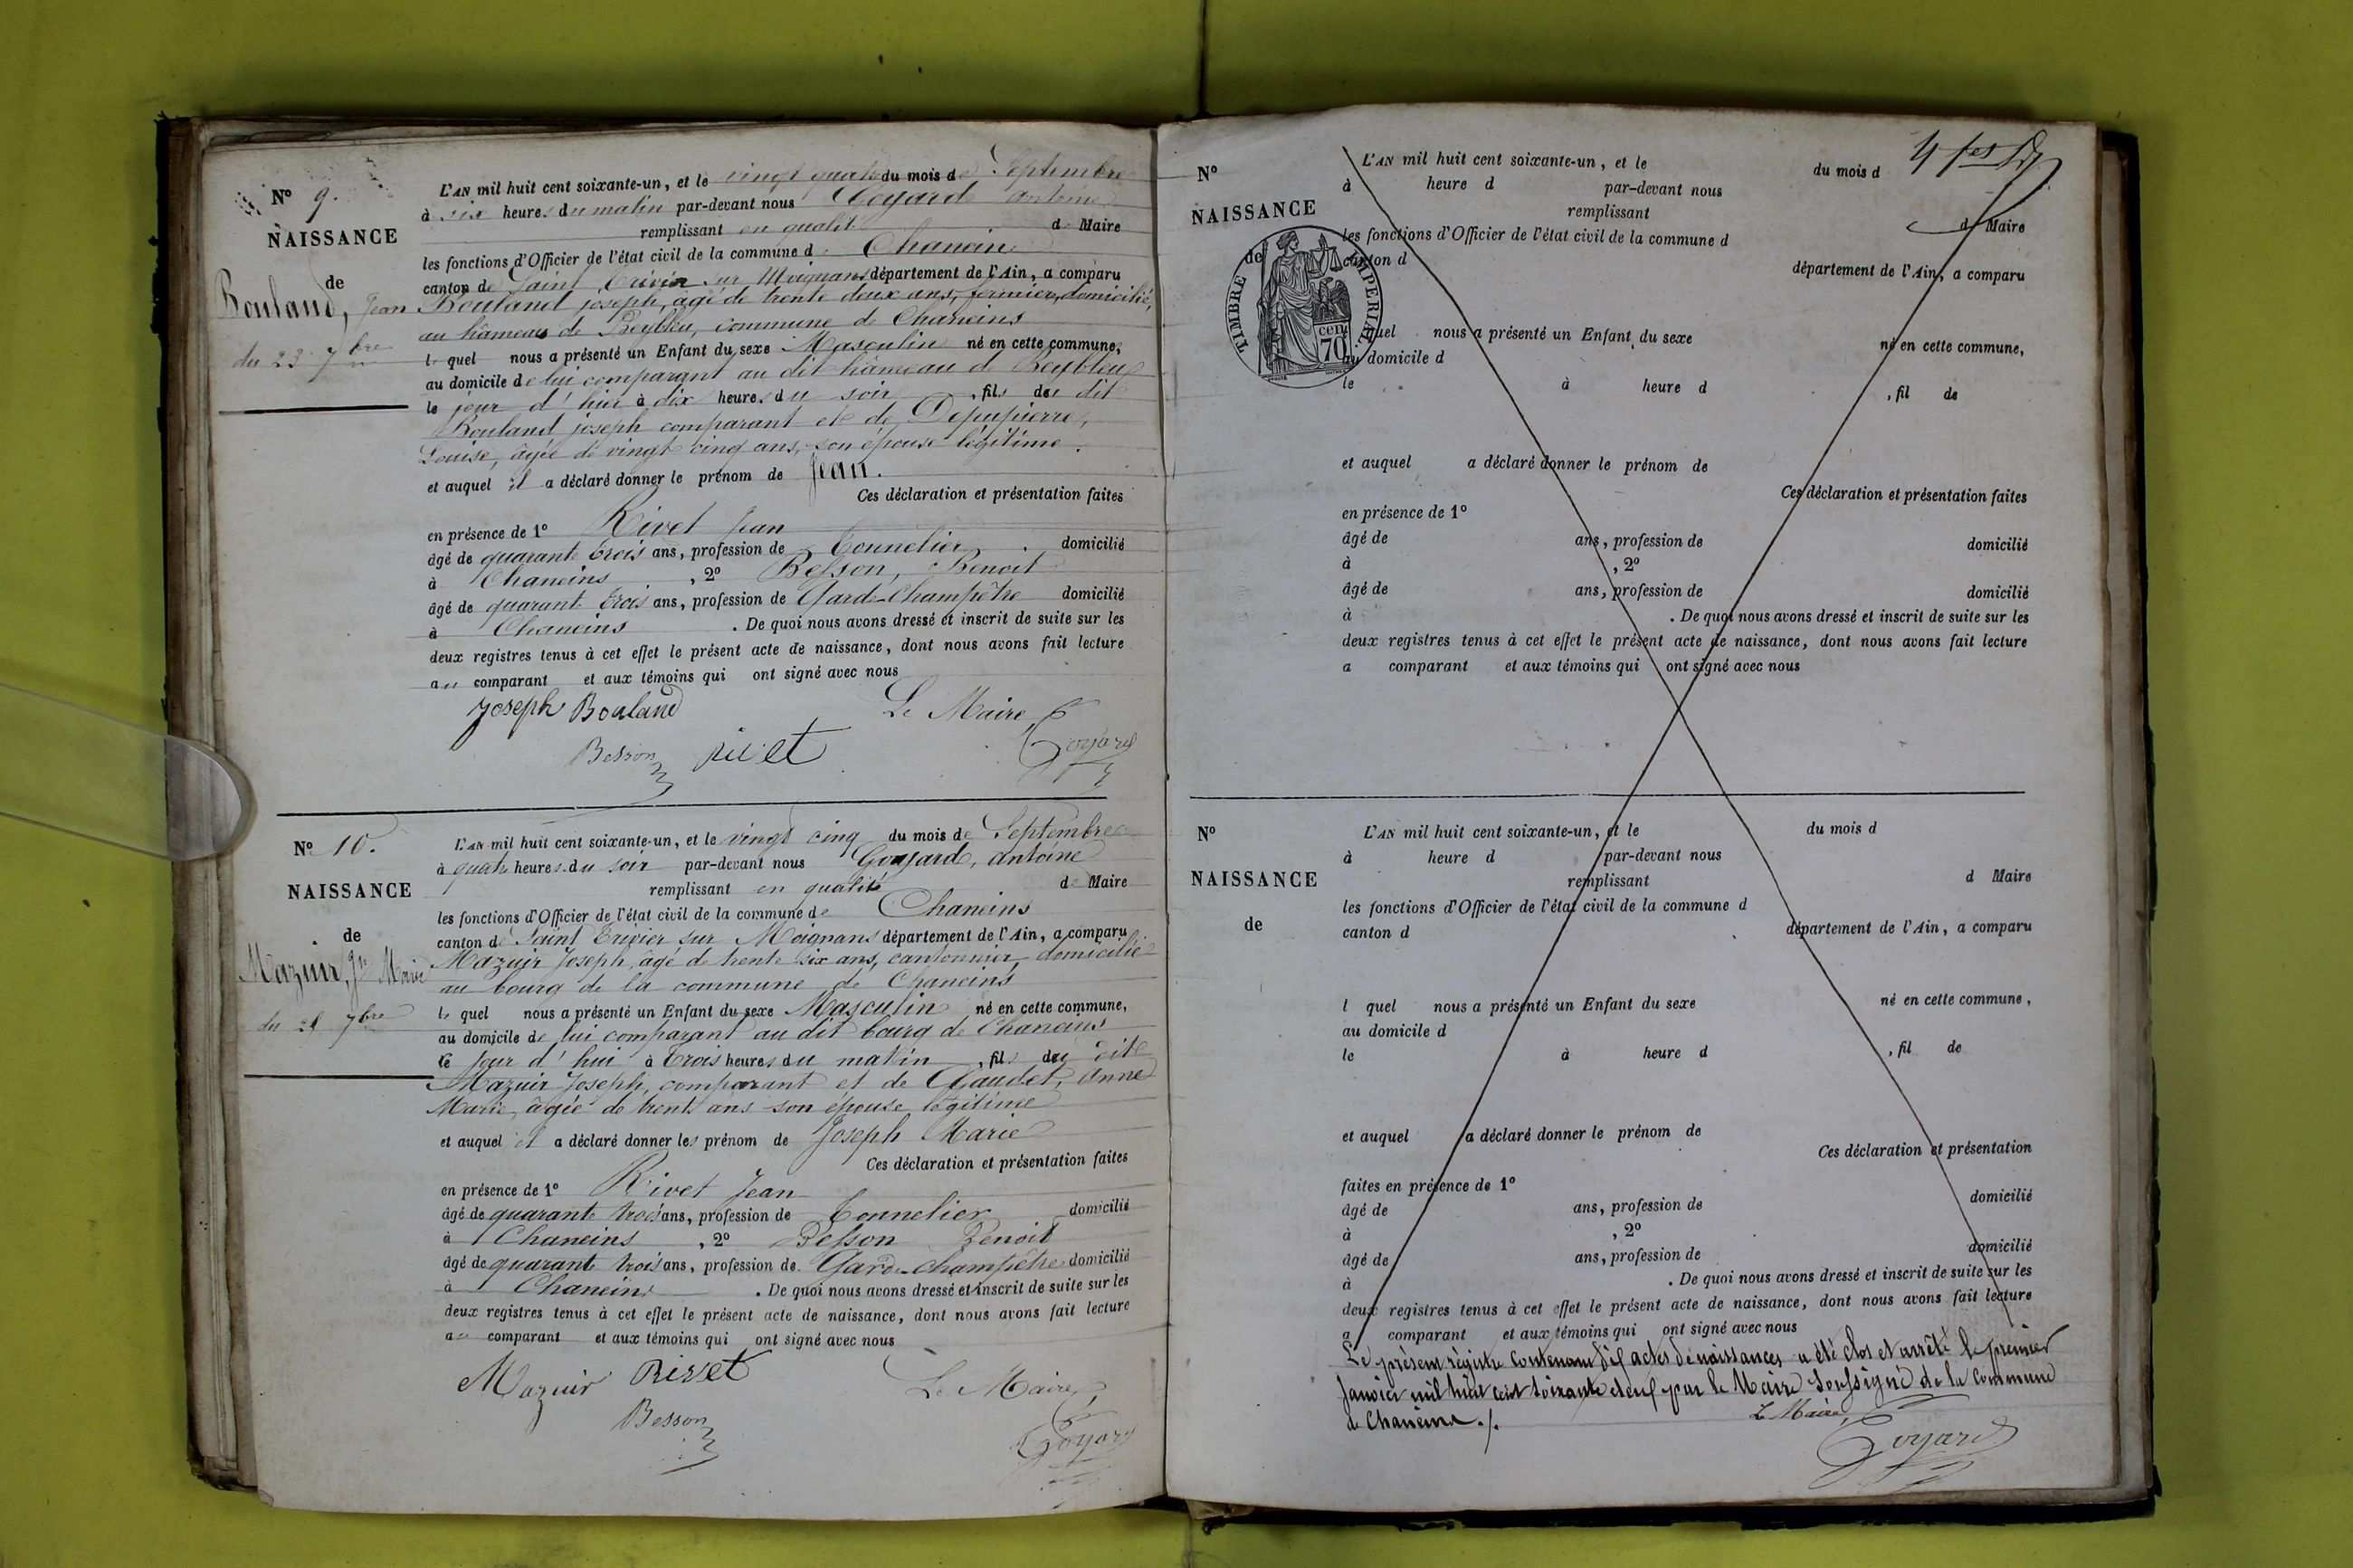 N° 9.
NAISSANCE
de
Bouland, Jean
du 23 7bre
L'AN mil huit cent soixante-un, et le vingt quatre du mois de Septembre
à six heures du matin par-devant nous Goyard antoine
remplissant en qualité de Maire
les fonctions d'Officier de l'état civil de la commune de Chaneins
canton de Saint Trivier sur Moignans département de l'Ain, a comparu
Bouland joseph, agé de trente deux ans, fermier, domicilié,
au hâmeau de Beybleu, commune de Chaneins
le quel nous a présenté un Enfant du sexe Masculin né en cette commune,
au domicile de lui comparant au dit hâmeau de Beybleu
le jour d'hier à dix heures du soir, fils du dit
Bouland joseph comparant et de Depupierre,
Louise, âgée de vingt cinq ans, son épouse légitime.
et auquel il a déclaré donner le prénom de Jean.
Ces déclaration et présentation faites
en présence de 1° Rivet Jean
âgé de quarante trois ans, profession de Tonnelier. domicilié
à Chaneins, 2° Besson, Benoit
âgé de quarante trois ans, profession de Garde-Champêtre domicilié
à Chaneins. De quoi nous avons dressé et inscrit de suite sur les
deux registres tenus à cet effet le présent acte de naissance, dont nous avons fait lecture
au comparant et aux témoins qui ont signé avec nous
Joseph Bouland Le Maire,
Besson Rivet Goyard
N° 10.
NAISSANCE
de
Mazuir, Jh Marie
du 25 7bre
L'AN mil huit cent soixante-un, et le vingt cinq du mois de Septembre
à quatre heures du soir par-devant nous Goyard, antoine
remplissant en qualité de Maire
les fonctions d'Officier de l'état civil de la commune de Chaneins
canton de Saint Trivier sur Moignans département de l'Ain, a comparu
Mazuir Joseph, agé de trente six ans, cantonnier, domicilié
au bourg de la commune de Chaneins
le quel nous a présenté un Enfant du sexe Masculin né en cette commune,
au domicile de lui comparant au dit bourg de Chaneins
le jour d'hui à trois heures du matin, fils du dit
Mazuir Joseph, comparant et de Gaudet, Anne
Marie, âgée de trente ans son épouse légitime
et auquel il a déclaré donner les prénom de Joseph Marie
Ces déclaration et présentation faites
en présence de 1° Rivet Jean
âgé de quarante trois ans, profession de Tonnelier domicilié
à Chaneins, 2° Besson Benoit
âgé de quarante trois ans, profession de Garde-champêtre domicilié
à Chaneins. De quoi nous avons dressé et inscrit de suite sur les
deux registres tenus à cet effet le présent acte de naissance, dont nous avons fait lecture
au comparant et aux témoins qui ont signé avec nous
Mazuir Rivet Le Maire,
Besson Goyard
N°
NAISSANCE
de
TIMBRE IMPERIAL
cen
70
L'AN mil huit cent soixante-un, et le du mois d
à heure d par-devant nous
remplissant d Maire
les fonctions d'Officier de l'état civil de la commune d
canton d département de l'Ain, a comparu
quel nous a présenté un Enfant du sexe né en cette commune,
au domicile d
le à heure d , fil de
et auquel a déclaré donner le prénom de
Ces déclaration et présentation faites
en présence de 1°
âgé de ans, profession de domicilié
à , 2°
âgé de ans, profession de domicilié
à . De quoi nous avons dressé et inscrit de suite sur les
deux registres tenus à cet effet le présent acte de naissance, dont nous avons fait lecture
a comparant et aux témoins qui ont signé avec nous
N°
NAISSANCE
de
L'AN mil huit cent soixante-un, et le du mois d
à heure d par-devant nous
remplissant d Maire
les fonctions d'Officier de l'état civil de la commune d
canton d département de l'Ain, a comparu
l quel nous a présenté un Enfant du sexe né en cette commune,
au domicile d
le à heure d , fil de
et auquel a déclaré donner le prénom de
Ces déclaration et présentation
faites en présence de 1°
âgé de ans, profession de domicilié
à , 2°
âgé de ans, profession de domicilié
à . De quoi nous avons dressé et inscrit de suite sur les
deux registres tenus à cet effet le présent acte de naissance, dont nous avons fait lecture
a comparant et aux témoins qui ont signé avec nous
Le présent régistre contenant dix actes de naissances a été clos et arrêté le premier
Janvier mil huit cent soixante deux par le Maire soussigné de la commune
de Chaneins ./.
Le Maire,
Goyard